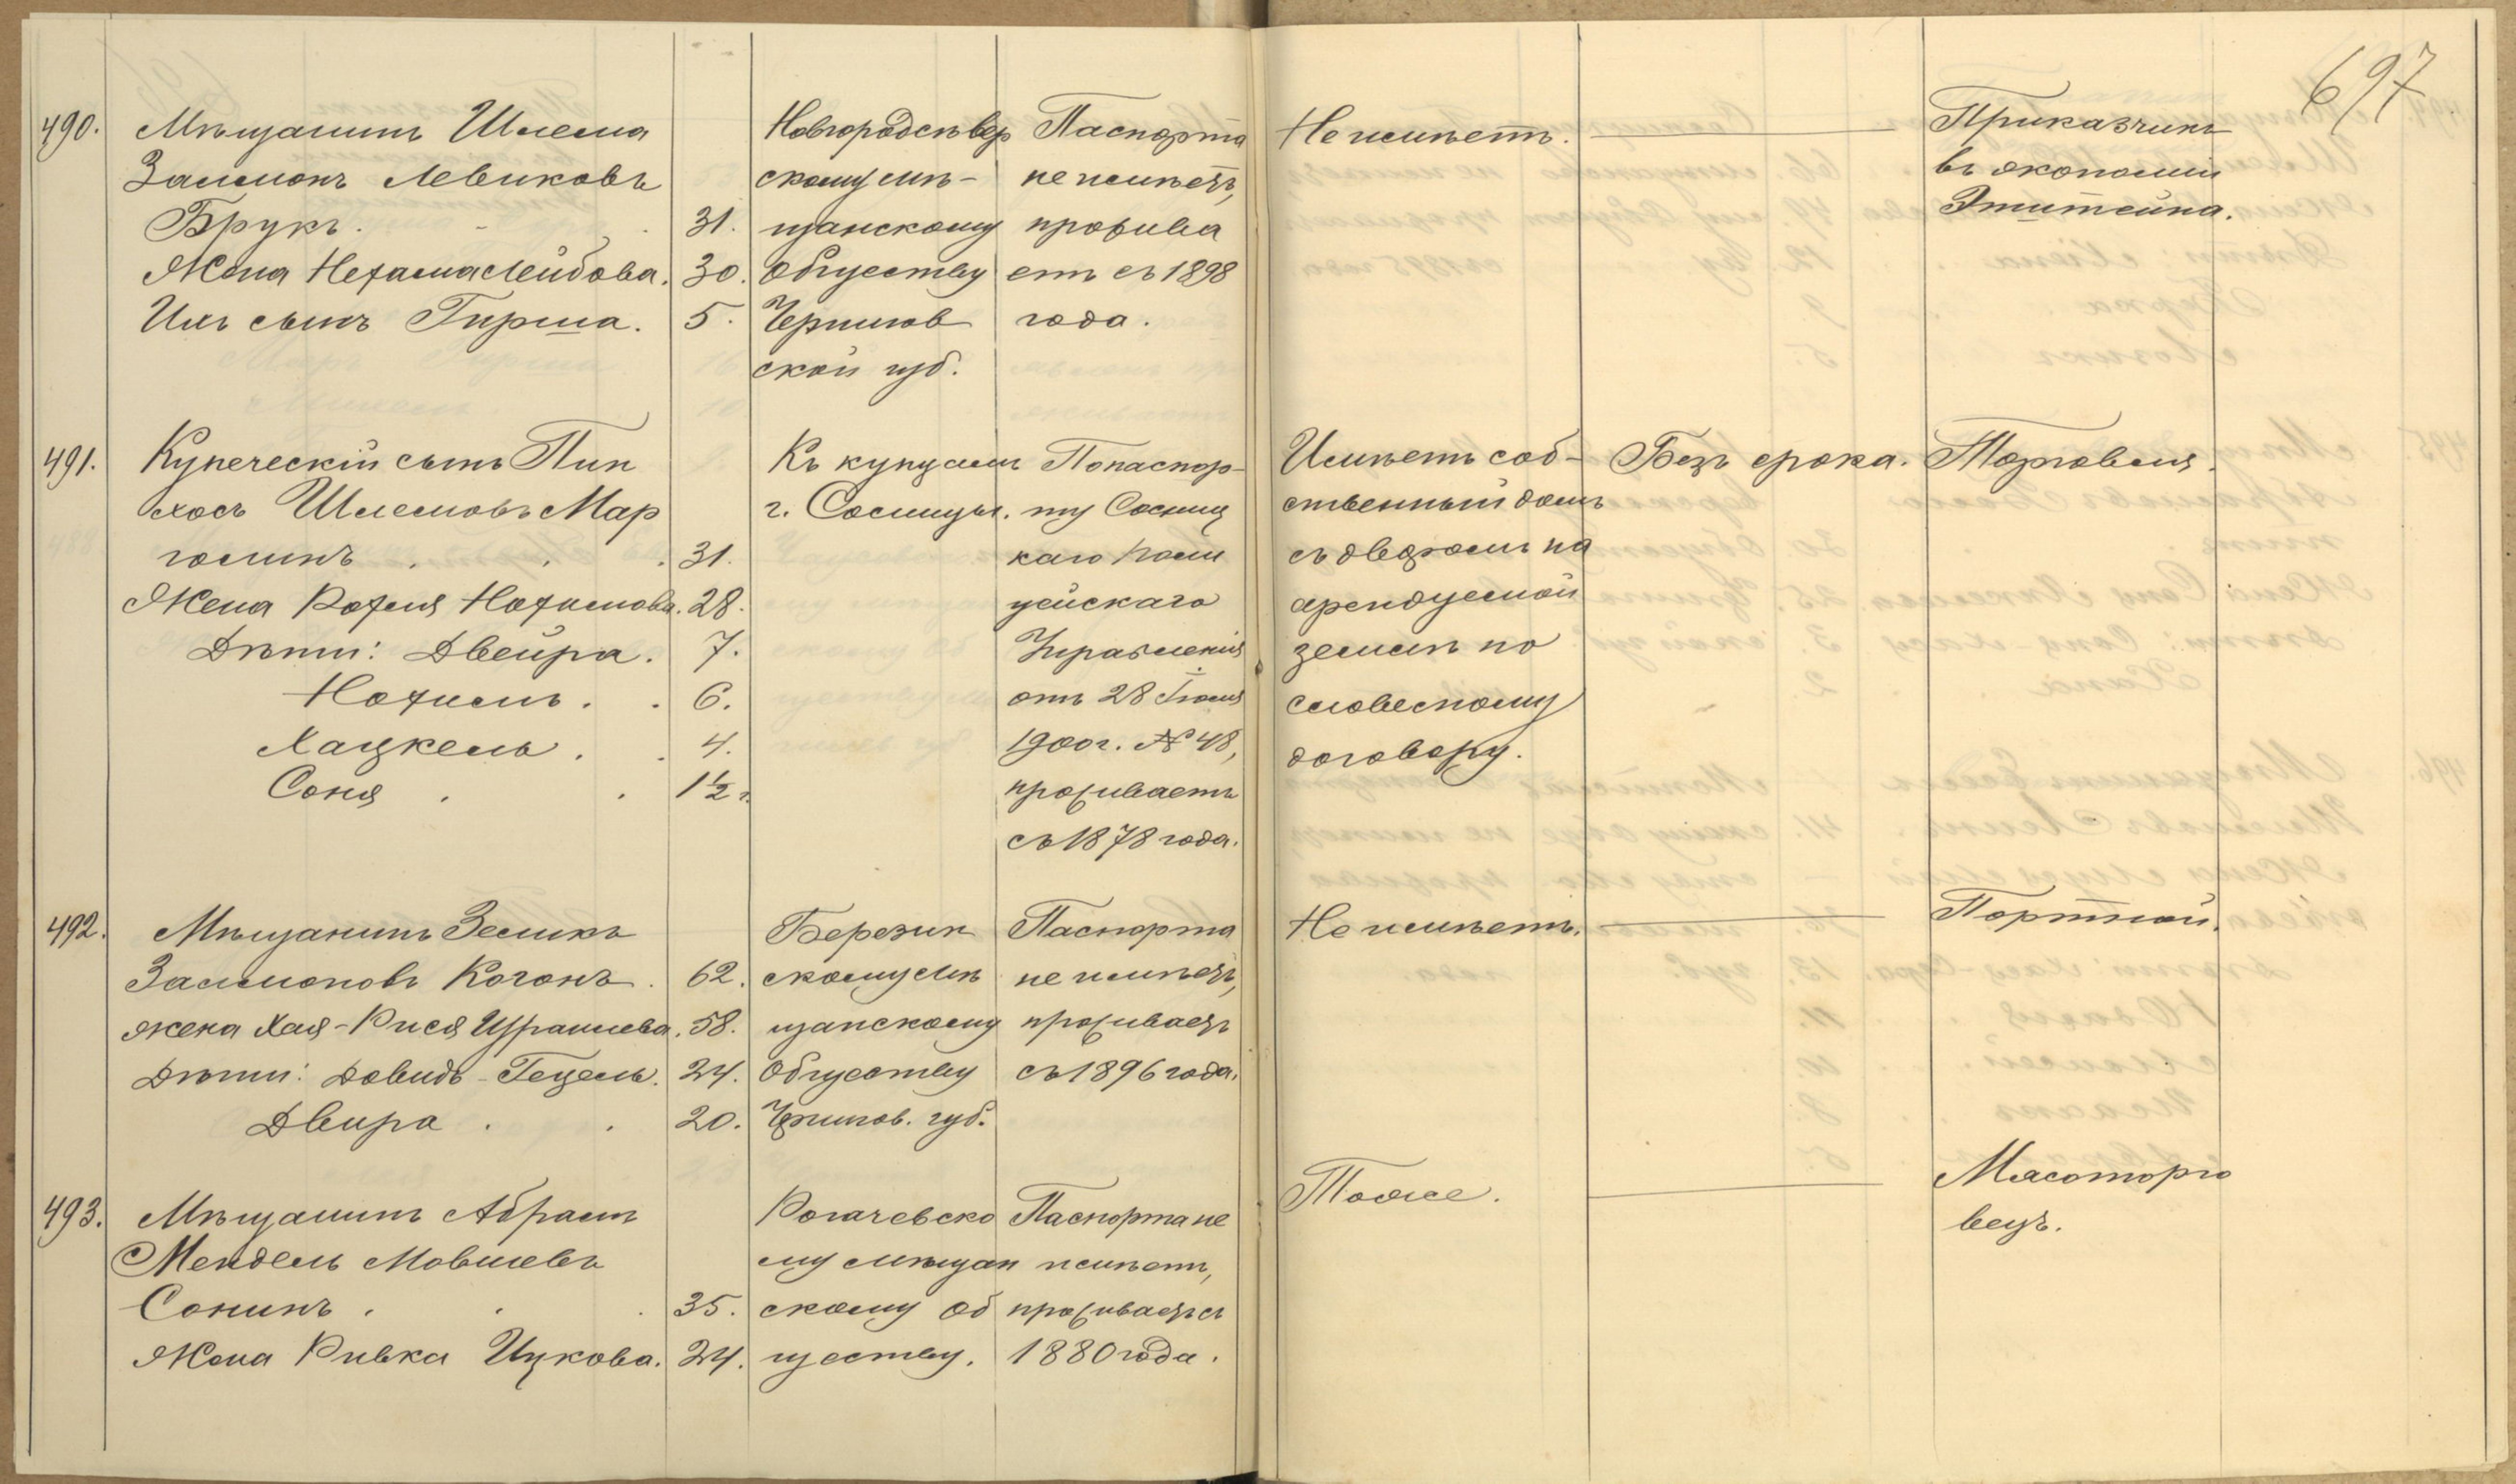 697
490. Мѣщанинъ Шлема
Залмонъ Левиковъ
Брукъ. 31.
Жена Нехама Лейбова. 30.
Ихъ сынъ Гирша. 5.
Новгородсѣвер
скому мѣ-
щанскому
обществу
Чернигов
ской губ.
Паспорта
не имѣетъ,
прожива
етъ съ 1898
года.
Не имѣетъ.
Приказчикъ
въ экономіи
491. Купеческій сынъ Пин
хосъ Шлемовъ Мар
голинъ 31.
Жена Рохля Нохимова. 28.
Дѣти: Двейра. 7.
Нохимъ. 6.
Хацкель. 4.
Соня 1½ г.
Къ купцамъ
г. Сосницы.
По паспор-
ту Сосниц
каго Поли
цейскаго
Управленія
отъ 28 Іюля
1900 г. № 48,
проживаетъ
съ 1878 года.
Имѣетъ соб-
ственный домъ
съ дворомъ на
арендуемой
землѣ по
словесному
договору.
Безъ срока.
Торговля.
492. Мѣщанинъ Зеликъ
Залмоновъ Когонъ. 62.
жена Хая-Рися Израилева. 58.
Дѣти: Довидъ-Гецель. 24.
Двира 20.
Березин
скому мѣ
щанскому
обществу
Чернигов. губ.
Паспорта
не имѣетъ,
проживаетъ
съ 1896 года.
Не имѣетъ.
Портной.
493. Мѣщанинъ Абрамъ
Мендель Мовшевъ
Сонинъ. 35.
Жена Ривка Ицкова. 24.
Рогачевско
му мѣщан
скому об
ществу.
Паспорта не
имѣетъ,
проживаетъ съ
1880 года.
Тоже.
Мясоторго
вецъ.